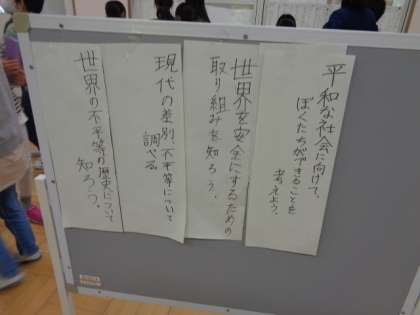 平和な社会に向けて、
ぼくたちができることを
考えよう。
世界を安全にするための
取り組みを知ろう。
現代の差別、不平等について
調べる。
世界の不平等の歴史について
知ろう。